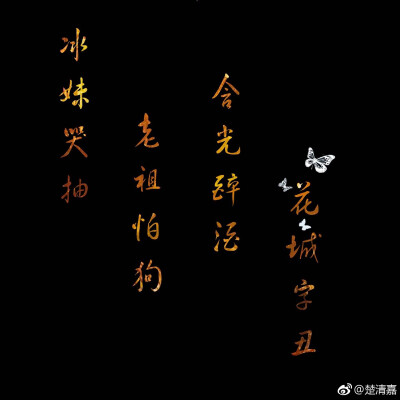 冰妹哭抽
老祖怕狗
含光醉酒
花城字丑
@楚清嘉